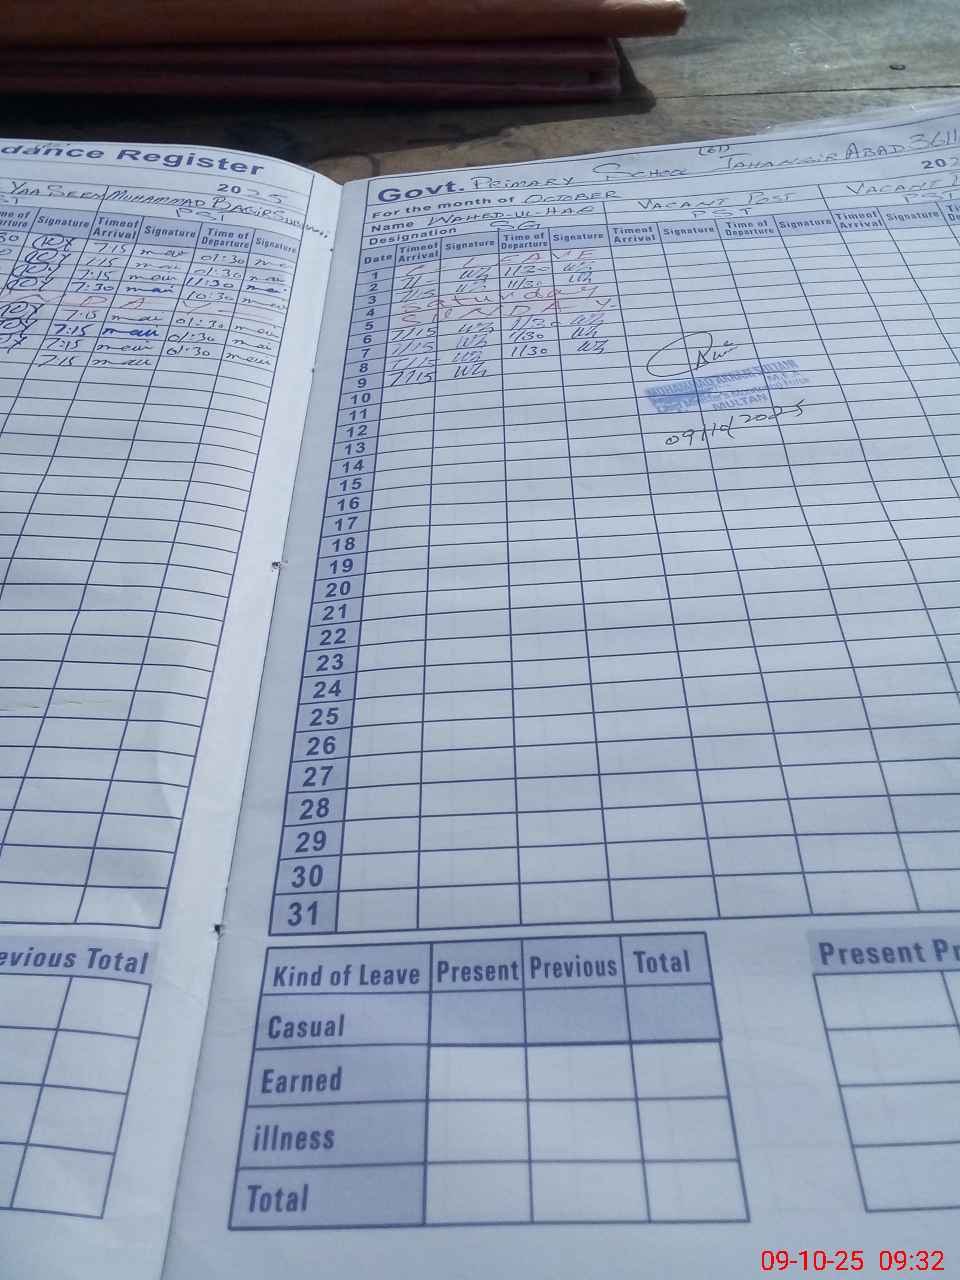 dance Register
2025
YAASEEN MUHAMMAD BAQIR
PST
Signature Time of Arrival Signature Time of Departure Signature
7:15 01:30
7:15 01:30
7:15 11:30
7:30 10:30
D A
7:15 01:30
7:15 01:30
7:15 01:30
7:15
evious Total
Govt. PRIMARY SCHOOL JAHANGIR ABAD 3611
For the month of OCTOBER 202
Name WAHED-UL-HAQ VACANT POST VACANT
Designation SG PST
Date Time of Arrival Signature Time of Departure Signature Time of Arrival Signature Time of Departure Signature Time of Arrival Signature
1 C - LEAVE
2 11/30
3 7/15 11/30
4 Saturday
5 SUNDAY
6 7/15 1/30
7 7/15 1/30
8 7/15 1/30
9 7/15
MULTAN
09/10/2025
10
11
12
13
14
15
16
17
18
19
20
21
22
23
24
25
26
27
28
29
30
31
Kind of Leave Present Previous Total
Casual
Earned
illness
Total
Present Pr
09-10-25 09:32